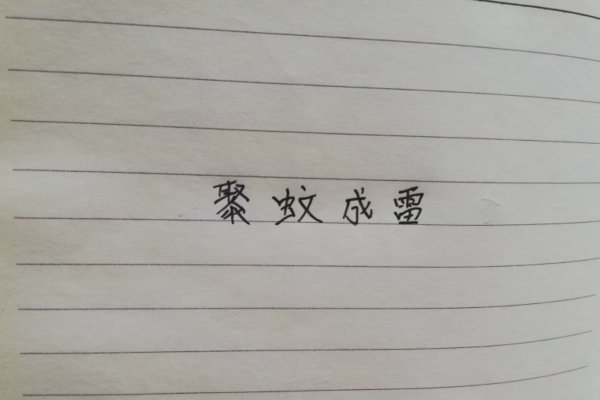 聚蚊成雷